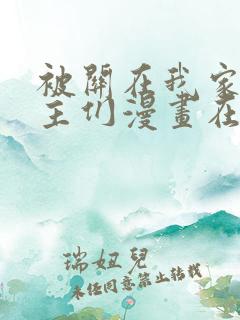 被關在我家
主们漫畫在
瑞妞兒
未經同意禁止转載